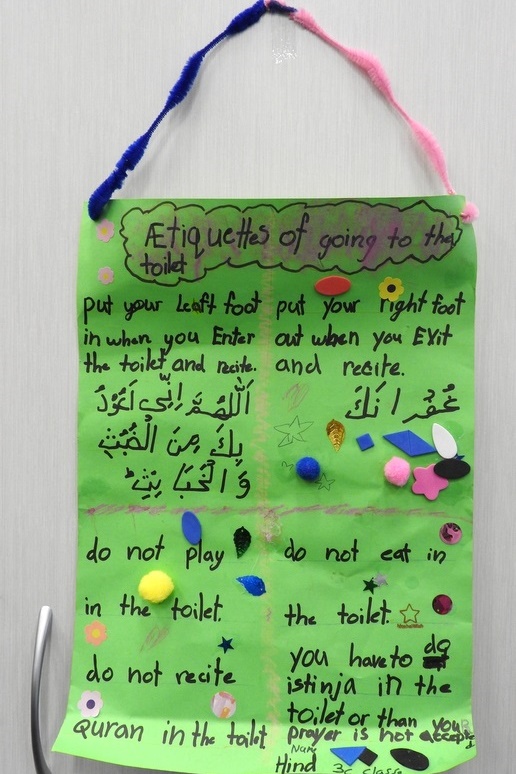 Ætiquettes of going to the
toilet
put your Left foot
in when you Enter
the toilet and recite.
اَللّٰهُمَّ اِنِّی اَعُوْذُ
بِكَ مِنَ الْخُبُثِ
وَالْخَبَايِثِ
put your right foot
out when you EXit
and recite.
غُفْرَانَكَ
do not play
in the toilet.
do not recite
quran in the toilet
do not eat in
the toilet.
you have to do
istinja in the
toilet or than your
prayer is not accepted
Hind 3c class